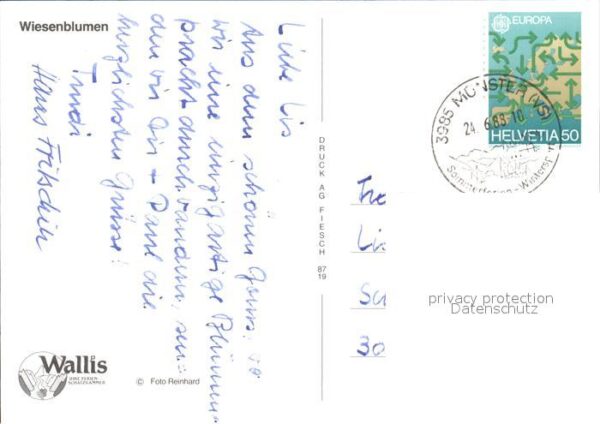 Wiesenblumen
Liebe Lis
Aus dem schönen Goms, wo
wir eine einzigartige Blumen=
pracht durchwandern, sen=
den wir Dir + Paul die
herzlichsten Grüsse!
Trudi
Hans
EUROPA
HELVETIA 50
3985 MÜNSTER (VS)
24.6.88-10
Sommerferien - Wintersp
DRUCK AG FIESCH
87
19
Fre
Li
Su
30
privacy protection
Datenschutz
Wallis
IHRE FERIEN-
SCHATZKAMMER
© Foto Reinhard